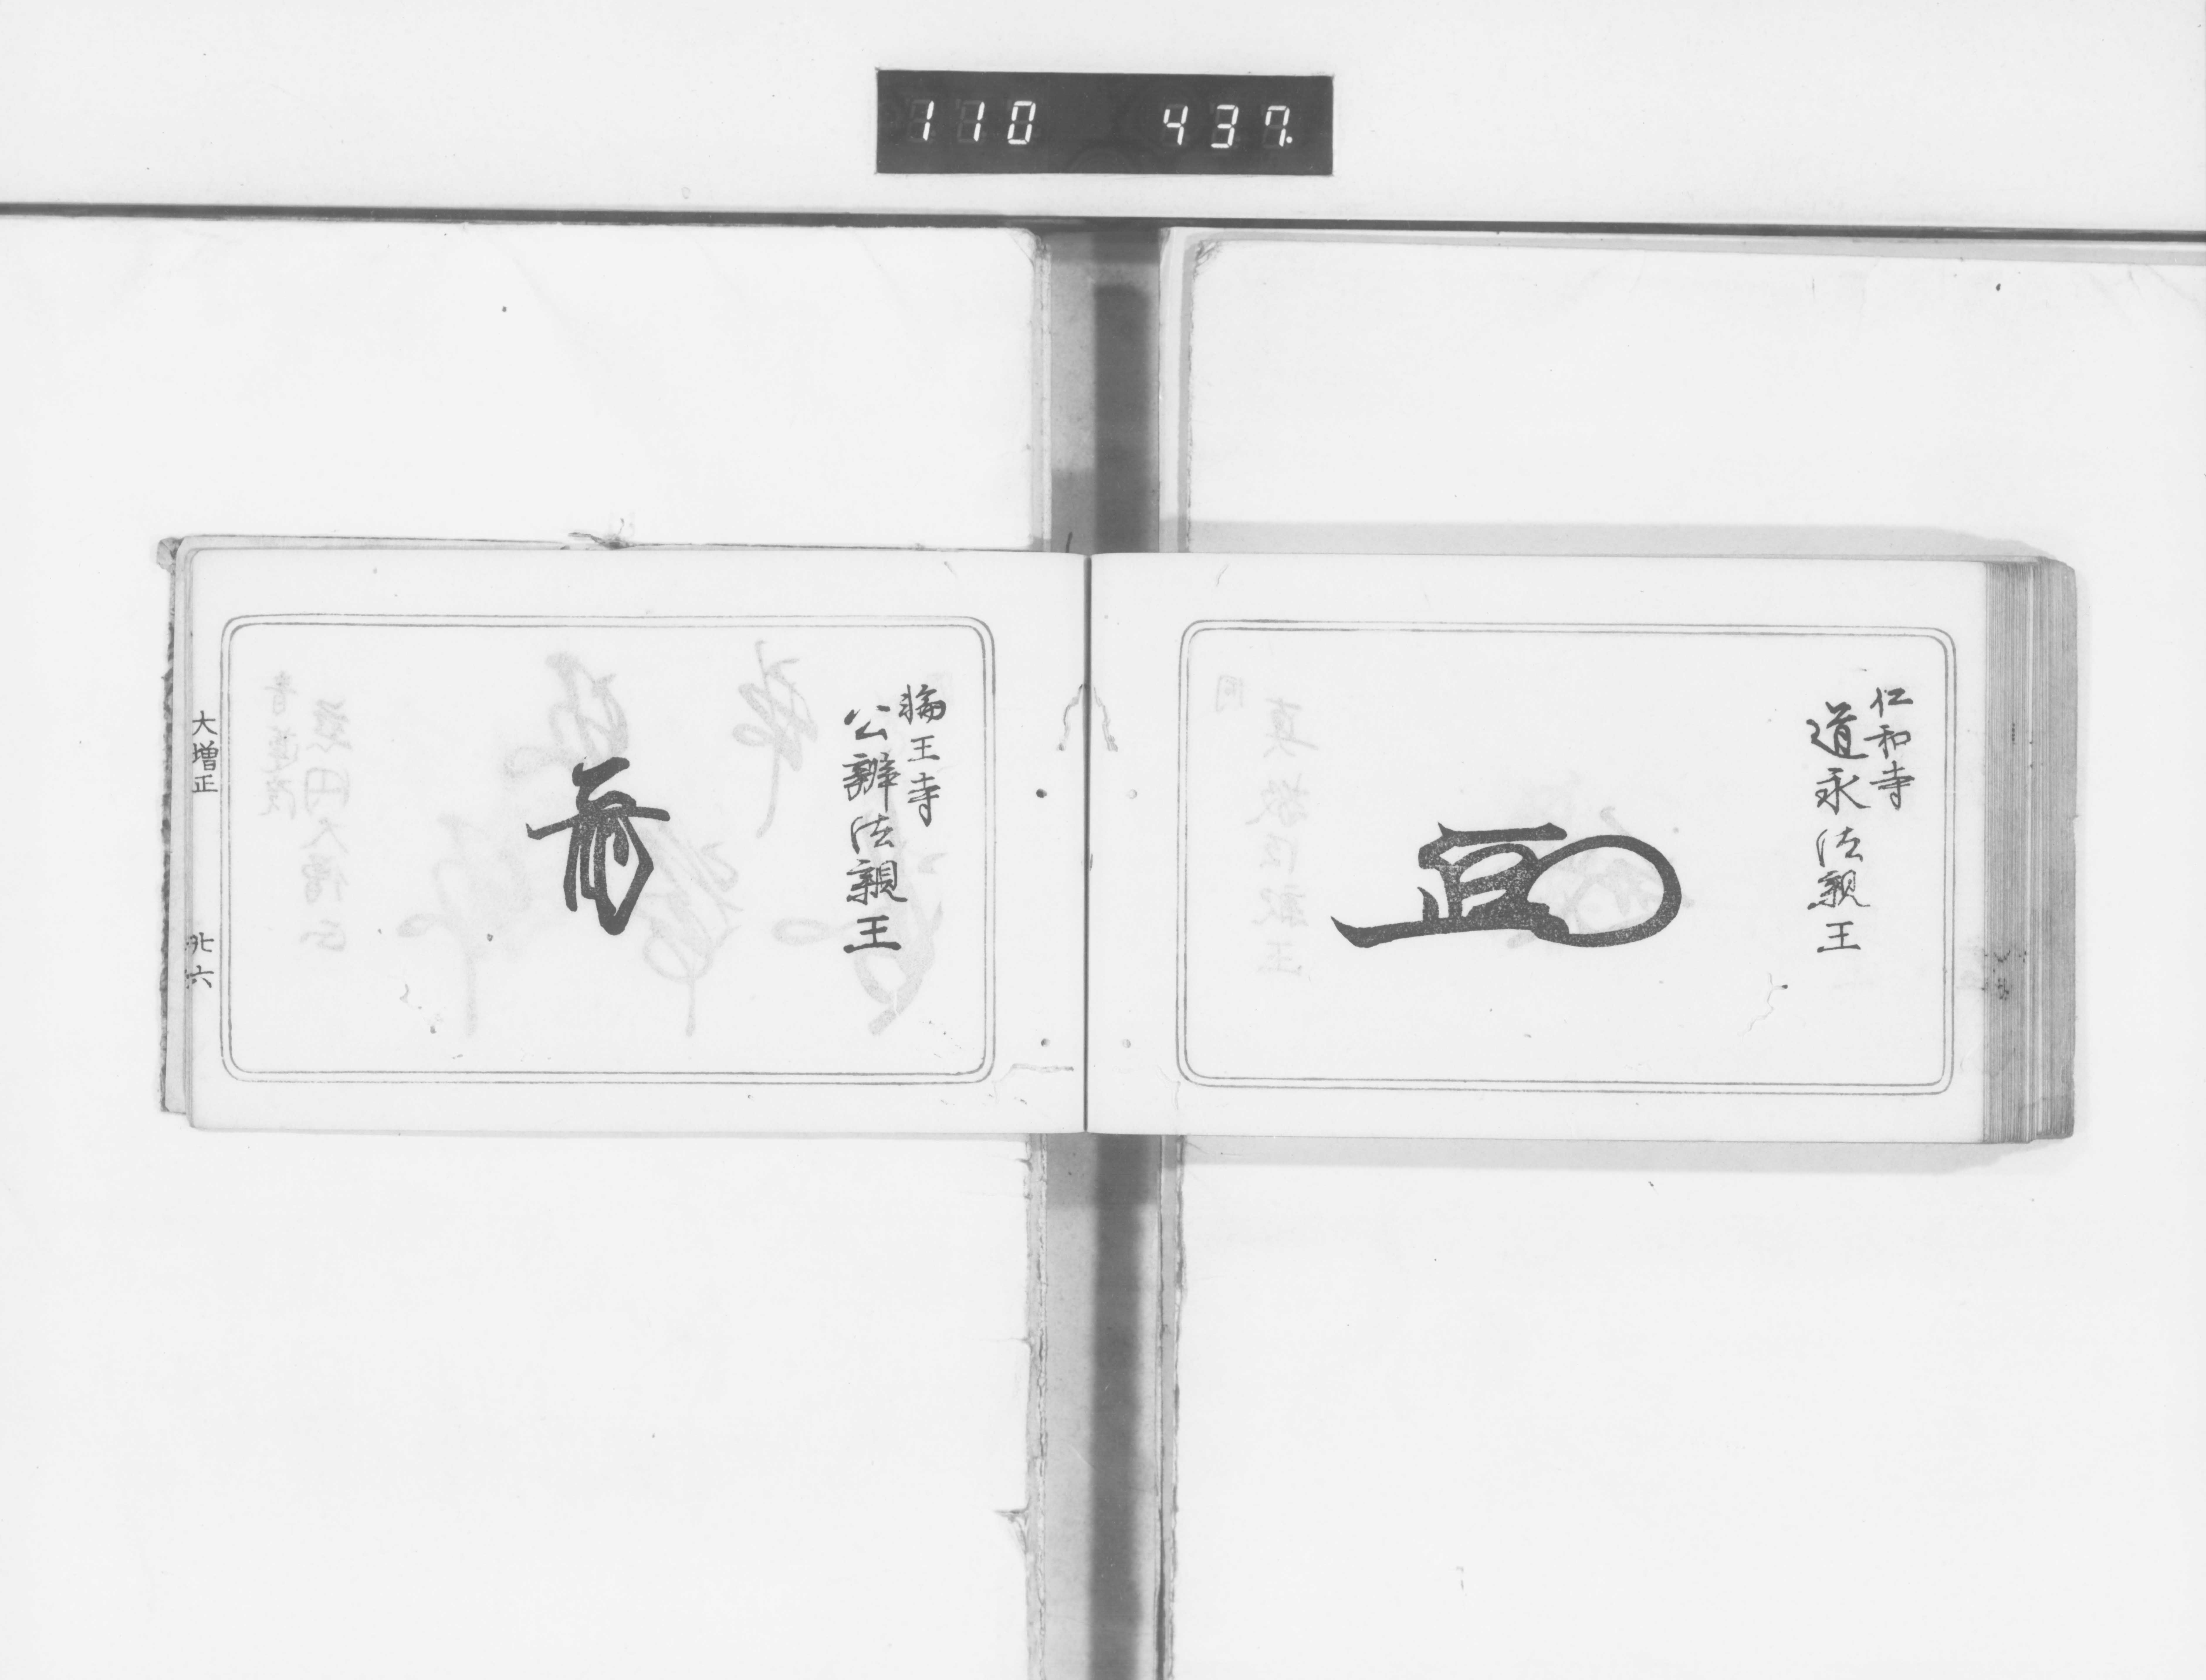 110 437.
仁和寺
道永法親王
輪王寺
公辨法親王
大増正
六